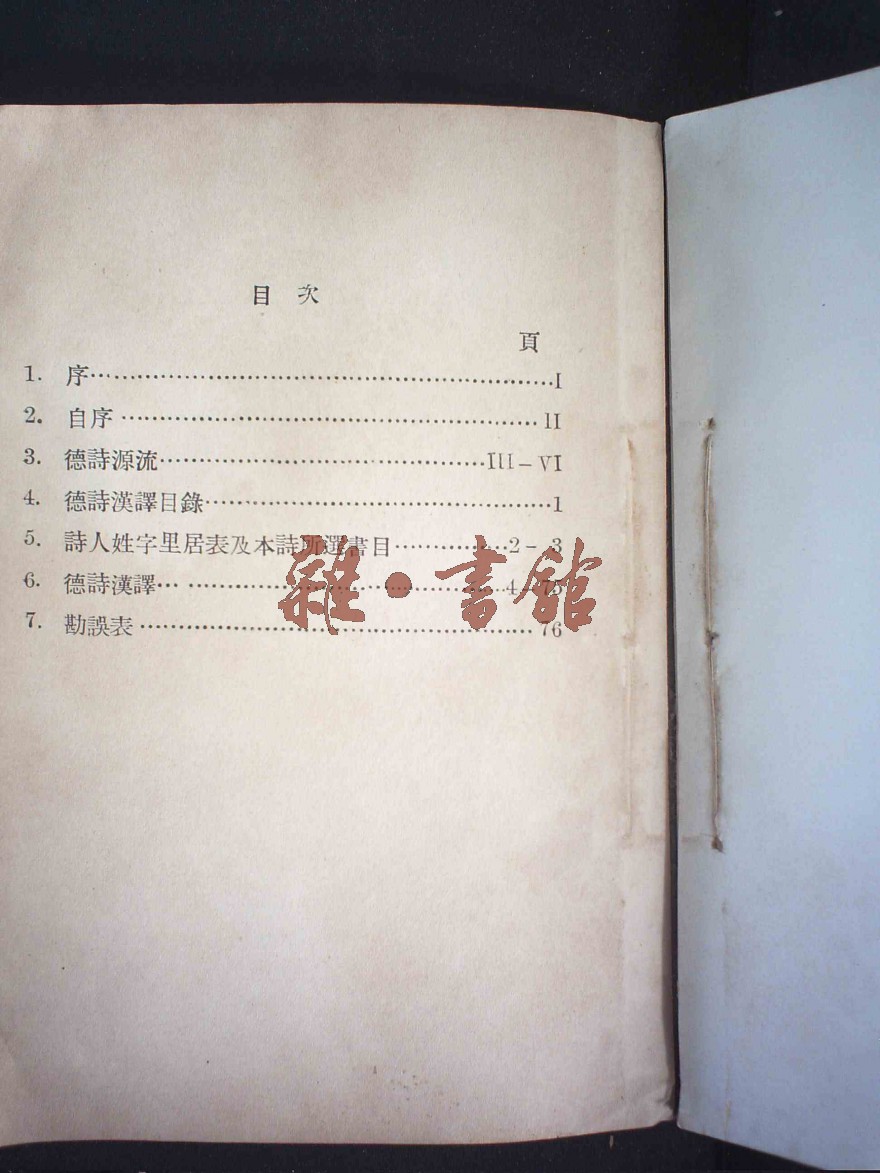 目 次
頁
1. 序……………………………………………I
2. 自序……………………………………………II
3. 德詩源流……………………………………III–VI
4. 德詩漢譯目錄……………………………………1
5. 詩人姓字里居表及本詩所選書目……………2–3
6. 德詩漢譯……………………………………4–75
7. 勘誤表……………………………………76
雜·書館